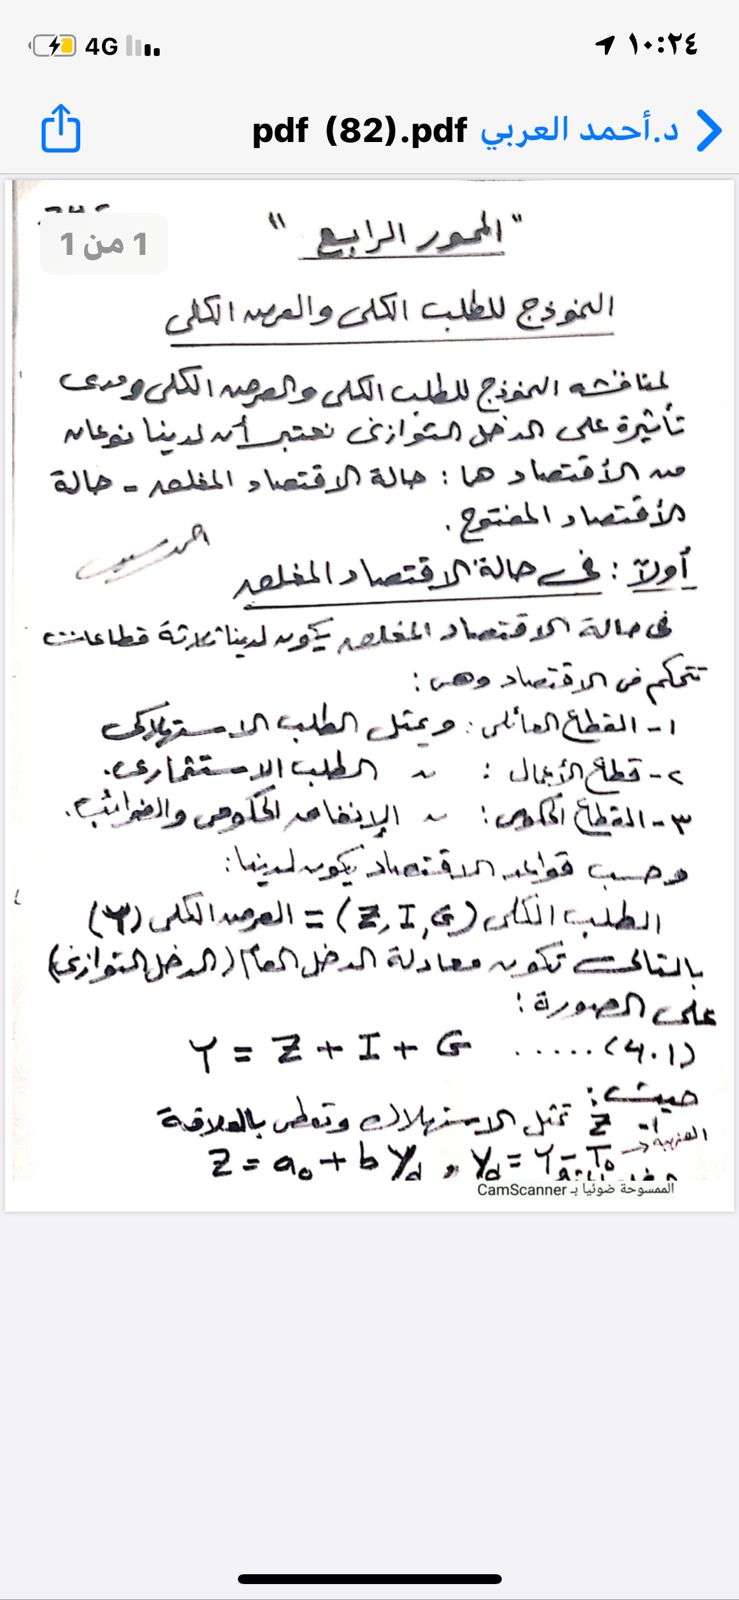 ١٠:٢٤
4G
د.أحمد العربي pdf (82).pdf
1 من 1
"المحور الرابع"
النموذج للطلب الكلى والعرض الكلى
لمناقشه النموذج للطلب الكلى والعرض الكلى ومدى
تأثيرة على الدخل التوازنى نعتبر أن لدينا نوعان
من الأقتصاد هما : حالة الاقتصاد المغلق - حالة
الأقتصاد المفتوح .
أولاً : فى حالة الاقتصاد المغلق
فى حالة الاقتصاد المغلق يكون لدينا ثلاثة قطاعات
تتحكم فى الاقتصاد وهى :
١- القطاع العائلى : ويمثل الطلب الاستهلاكى
٢- قطاع الأعمال : " الطلب الاستثمارى .
٣- القطاع الحكومى : " الإنفاق الحكومى والضرائب .
وحسب قواعد الاقتصاد يكون لدينا :
الطلب الكلى (Z, I, G) = العرض الكلى (Y)
بالتالى تكون معادلة الدخل العام (الدخل التوازنى)
على الصورة :
Y = Z + I + G ...... (4.1)
حيث :
Z تمثل الاستهلاك وتعطى بالعلاقة
Z = a₀ + b Yd , Yd = Y - T₀ → الضريبة
الممسوحة ضوئيا بـ CamScanner